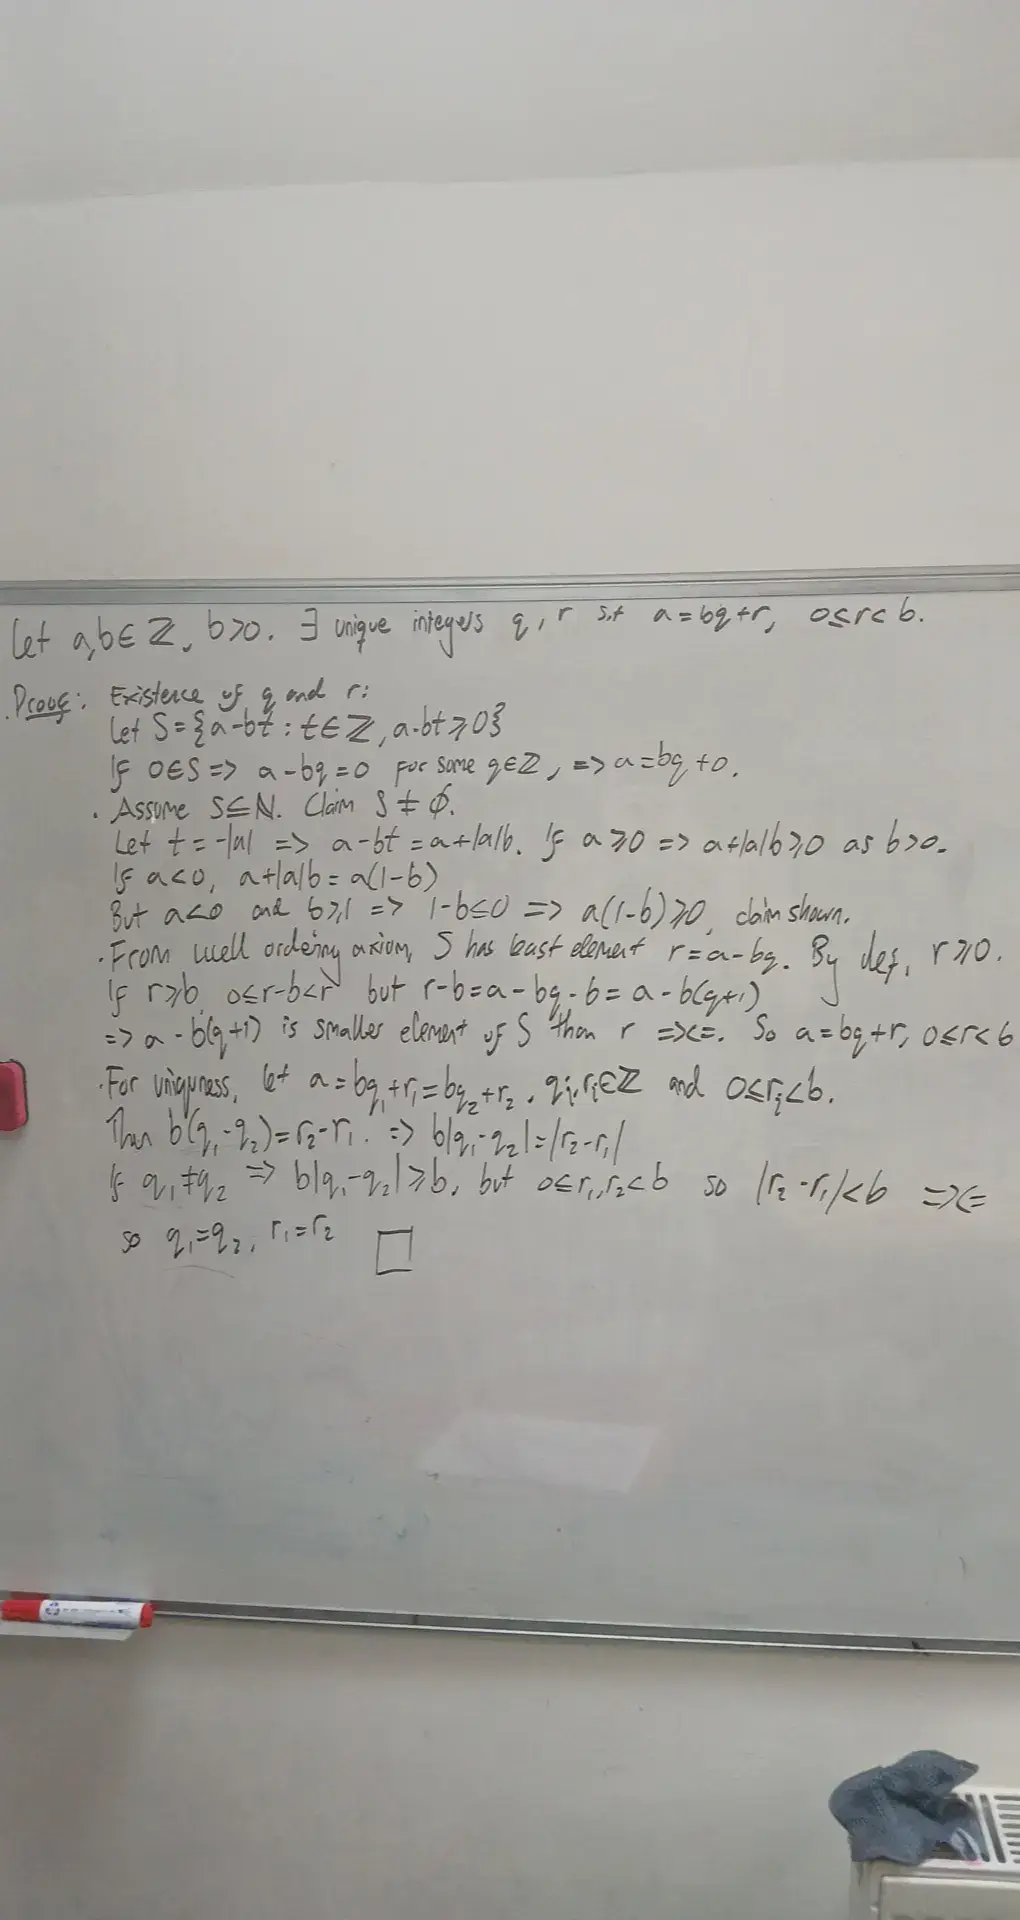 Let a,b∈ℤ, b>0. ∃ unique integers q, r s.t a=bq+r, 0≤r<b.
Proof: Existence of q and r:
Let S={a-bt : t∈ℤ, a-bt⩾0}
If 0∈S => a-bq=0 for some q∈ℤ, => a=bq+0.
· Assume S⊆ℕ. Claim S≠∅.
Let t=-|a| => a-bt=a+|a|b. If a⩾0 => a+|a|b⩾0 as b>0.
If a<0, a+|a|b=a(1-b)
But a<0 and b⩾1 => 1-b≤0 => a(1-b)⩾0, claim shown.
· From well ordering axiom, S has least element r=a-bq. By def, r⩾0.
If r⩾b, 0≤r-b<r but r-b=a-bq-b=a-b(q+1)
=> a-b(q+1) is smaller element of S than r =><=. So a=bq+r, 0≤r<b
· For uniquness, let a=bq₁+r₁=bq₂+r₂, qᵢ,rᵢ∈ℤ and 0≤rᵢ<b.
Then b(q₁-q₂)=r₂-r₁. => b|q₁-q₂|=|r₂-r₁|
If q₁≠q₂ => b|q₁-q₂|⩾b, but 0≤r₁,r₂<b so |r₂-r₁|<b =><=
so q₁=q₂, r₁=r₂ □